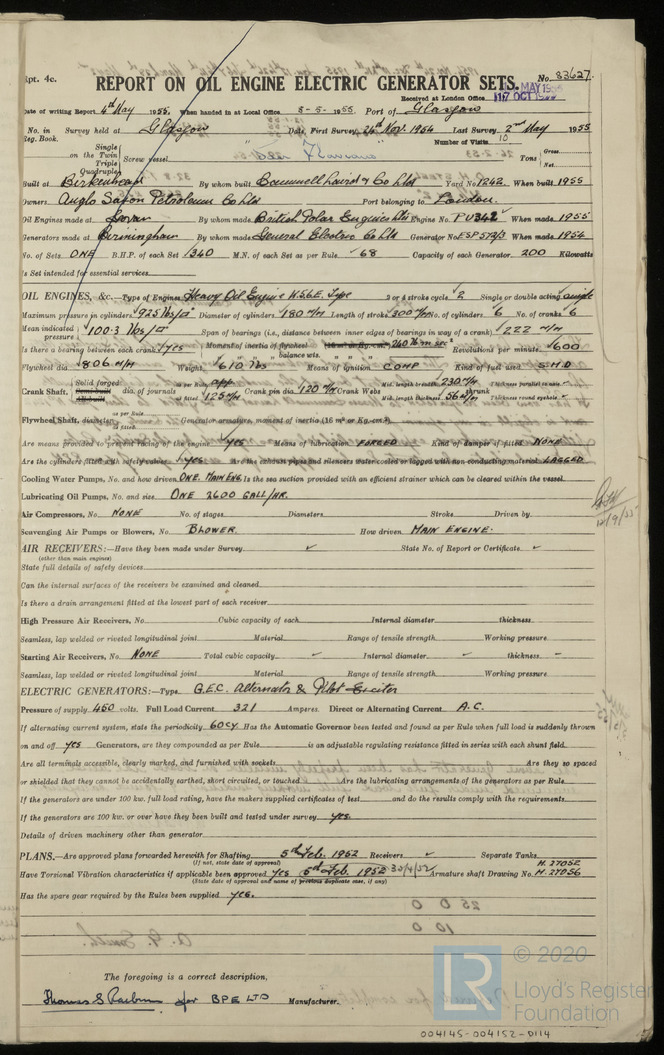 Rpt. 4c.
REPORT ON OIL ENGINE ELECTRIC GENERATOR SETS.
No. 83627.
Received at London Office
17 OCT
Date of writing Report 4th May 1955. When handed in at Local Office 3-5-1955. Port of Glasgow
No. in Reg. Book. Survey held at Glasgow Date, First Survey 24th Nov. 1954 Last Survey 2nd May 1955
Number of Visits 10
Single
on the Twin
Triple
Quadruple
Screw vessel
Tons Gross
Net
Built at Birkenhead By whom built Cammell Laird & Co Ltd Yard No 1242 When built 1955
Owners Anglo Saxon Petroleum Co Ltd Port belonging to London.
Oil Engines made at Govan By whom made British Polar Engines Ltd Engine No. PU342 When made 1955
Generators made at Birmingham By whom made General Electric Co Ltd Generator No. ESP 572/3 When made 1954
No. of Sets ONE B.H.P. of each Set 340 M.N. of each Set as per Rule 68 Capacity of each Generator 200 Kilowatts
Is Set intended for essential services
OIL ENGINES, &c.—Type of Engines Heavy Oil Engine N56E. Type 2 or 4 stroke cycle 2 Single or double acting single
Maximum pressure in cylinders 925 lbs/□" Diameter of cylinders 180 M/M Length of stroke 300 M/M No. of cylinders 6 No. of cranks 6
Mean indicated pressure 100.3 lbs/□" Span of bearings (i.e., distance between inner edges of bearings in way of a crank) 222 M/M
Is there a bearing between each crank Yes Moment of inertia of flywheel 260 lb m sec² Revolutions per minute 600
balance wts.
Flywheel dia. 806 M/M Weight 610 lbs Means of ignition COMP Kind of fuel used S.H.D
Crank Shaft, Solid forged dia. of journals as per Rule app as fitted 125 M/M Crank pin dia. 120 M/M Crank Webs Mid. length breadth 230 M/M Thickness parallel to axis
Mid. length thickness 56 M/M shrunk Thickness round eyehole
Flywheel Shaft, diameter as per Rule as fitted Generator armature, moment of inertia (16 m² or Kg.-cm.²)
Are means provided to prevent racing of the engine Yes Means of lubrication FORCED Kind of damper if fitted NONE
Are the cylinders fitted with safety valves Yes Are the exhaust pipes and silencers water cooled or lagged with non-conducting material LAGGED
Cooling Water Pumps, No. and how driven ONE. MAIN ENG. Is the sea suction provided with an efficient strainer which can be cleared within the vessel
Lubricating Oil Pumps, No. and size ONE 2600 GALL/HR.
Air Compressors, No. NONE No. of stages Diameters Stroke Driven by
Scavenging Air Pumps or Blowers, No. BLOWER How driven MAIN ENGINE.
12/9/55
AIR RECEIVERS:—Have they been made under Survey State No. of Report or Certificate
(other than main engines)
State full details of safety devices
Can the internal surfaces of the receivers be examined and cleaned
Is there a drain arrangement fitted at the lowest part of each receiver
High Pressure Air Receivers, No. Cubic capacity of each Internal diameter thickness
Seamless, lap welded or riveted longitudinal joint Material Range of tensile strength Working pressure
Starting Air Receivers, No. NONE Total cubic capacity Internal diameter thickness
Seamless, lap welded or riveted longitudinal joint Material Range of tensile strength Working pressure
ELECTRIC GENERATORS:—Type G.E.C. Alternator & Pilot Exciter
Pressure of supply 450 volts. Full Load Current 321 Amperes. Direct or Alternating Current A.C.
If alternating current system, state the periodicity 60CY Has the Automatic Governor been tested and found as per Rule when full load is suddenly thrown
on and off Yes Generators, are they compounded as per Rule is an adjustable regulating resistance fitted in series with each shunt field
Are all terminals accessible, clearly marked, and furnished with sockets Are they so spaced
or shielded that they cannot be accidentally earthed, short circuited, or touched Are the lubricating arrangements of the generators as per Rule
If the generators are under 100 kw. full load rating, have the makers supplied certificates of test and do the results comply with the requirements
If the generators are 100 kw. or over have they been built and tested under survey yes.
Details of driven machinery other than generator
PLANS.—Are approved plans forwarded herewith for Shafting 5th Feb. 1952 Receivers Separate Tanks
(If not, state date of approval)
Have Torsional Vibration characteristics if applicable been approved Yes 5th Feb. 1952 30/4/52 Armature shaft Drawing No. H.27052
H.27056
(State date of approval and name of previous duplicate case, if any)
Has the spare gear required by the Rules been supplied Yes.
The foregoing is a correct description,
Thomas S Raeburn for BPE LTD Manufacturer.
© 2020
LR
Lloyd's Register
Foundation
004145-004152-0114